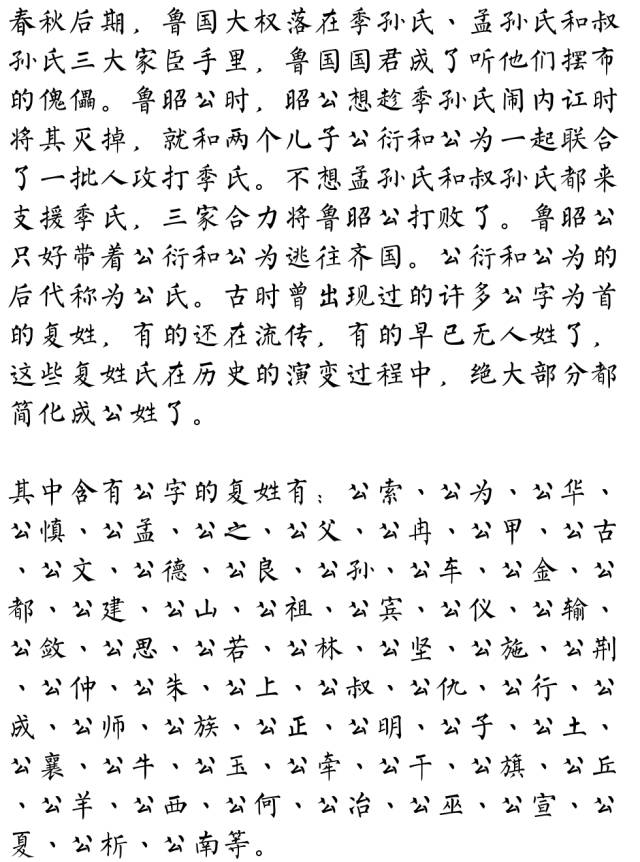 春秋后期，鲁国大权落在季孙氏、孟孙氏和叔
孙氏三大家臣手里，鲁国国君成了听他们摆布
的傀儡。鲁昭公时，昭公想趁季孙氏闹内讧时
将其灭掉，就和两个儿子公衍和公为一起联合
了一批人攻打季氏。不想孟孙氏和叔孙氏都来
支援季氏，三家合力将鲁昭公打败了。鲁昭公
只好带着公衍和公为逃往齐国。公衍和公为的
后代称为公氏。古时曾出现过的许多公字为首
的复姓，有的还在流传，有的早已无人姓了，
这些复姓氏在历史的演变过程中，绝大部分都
简化成公姓了。
其中含有公字的复姓有：公索、公为、公华、
公慎、公孟、公之、公父、公冉、公甲、公古
、公文、公德、公良、公孙、公车、公金、公
都、公建、公山、公祖、公宾、公仪、公输、
公敛、公思、公若、公林、公坚、公施、公荆
、公仲、公朱、公上、公叔、公仇、公行、公
成、公师、公族、公正、公明、公子、公土、
公襄、公牛、公玉、公牵、公干、公旗、公丘
、公羊、公西、公何、公冶、公巫、公宣、公
夏、公析、公南等。